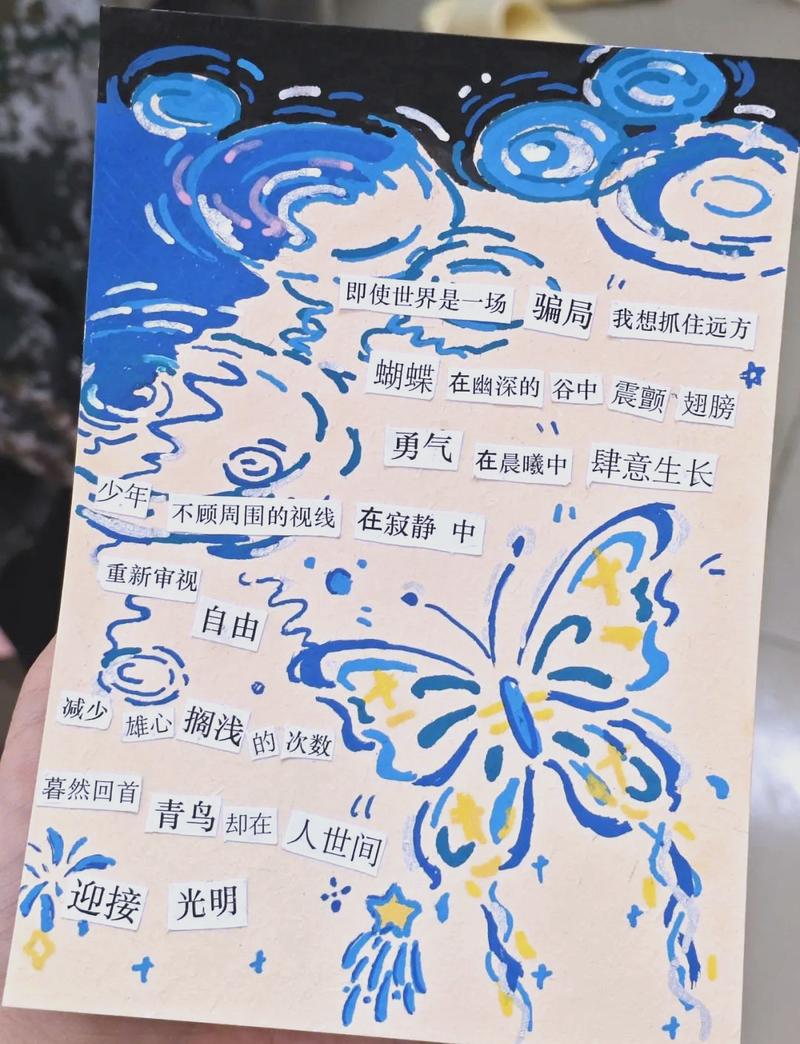 即使世界是一场 骗局 我想抓住远方
蝴蝶 在幽深的 谷中 震颤 翅膀
勇气 在晨曦中 肆意生长
少年 不顾周围的视线 在寂静 中
重新审视
自由
减少 雄心 搁浅 的 次数
暮然回首
青鸟 却在 人世间
迎接 光明